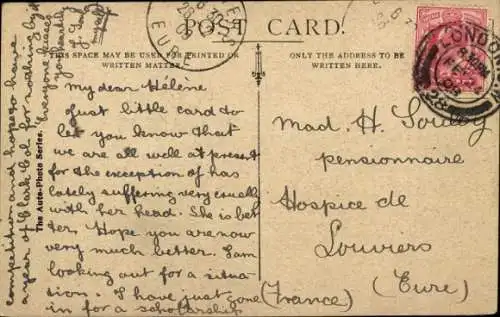 POST CARD.
THIS SPACE MAY BE USED FOR PRINTED OR
WRITTEN MATTER.
ONLY THE ADDRESS TO BE
WRITTEN HERE.
The Auto-Photo Series.
LONDON
My dear Hélène
Just little card to
let you know that
we are all well at present
for the exception of has
lately suffering very
with her head. She is bet
ter. Hope you are now
very much better. I am
looking out for a situa
tion. I have just gone
in for a scholarship
competition and hope to have
a year of Clark Col for nothing by it
Everyone kisses
you heartily
myself
Mad. H.
pensionnaire
Hospice de
Louviers
(Eure)
(France)